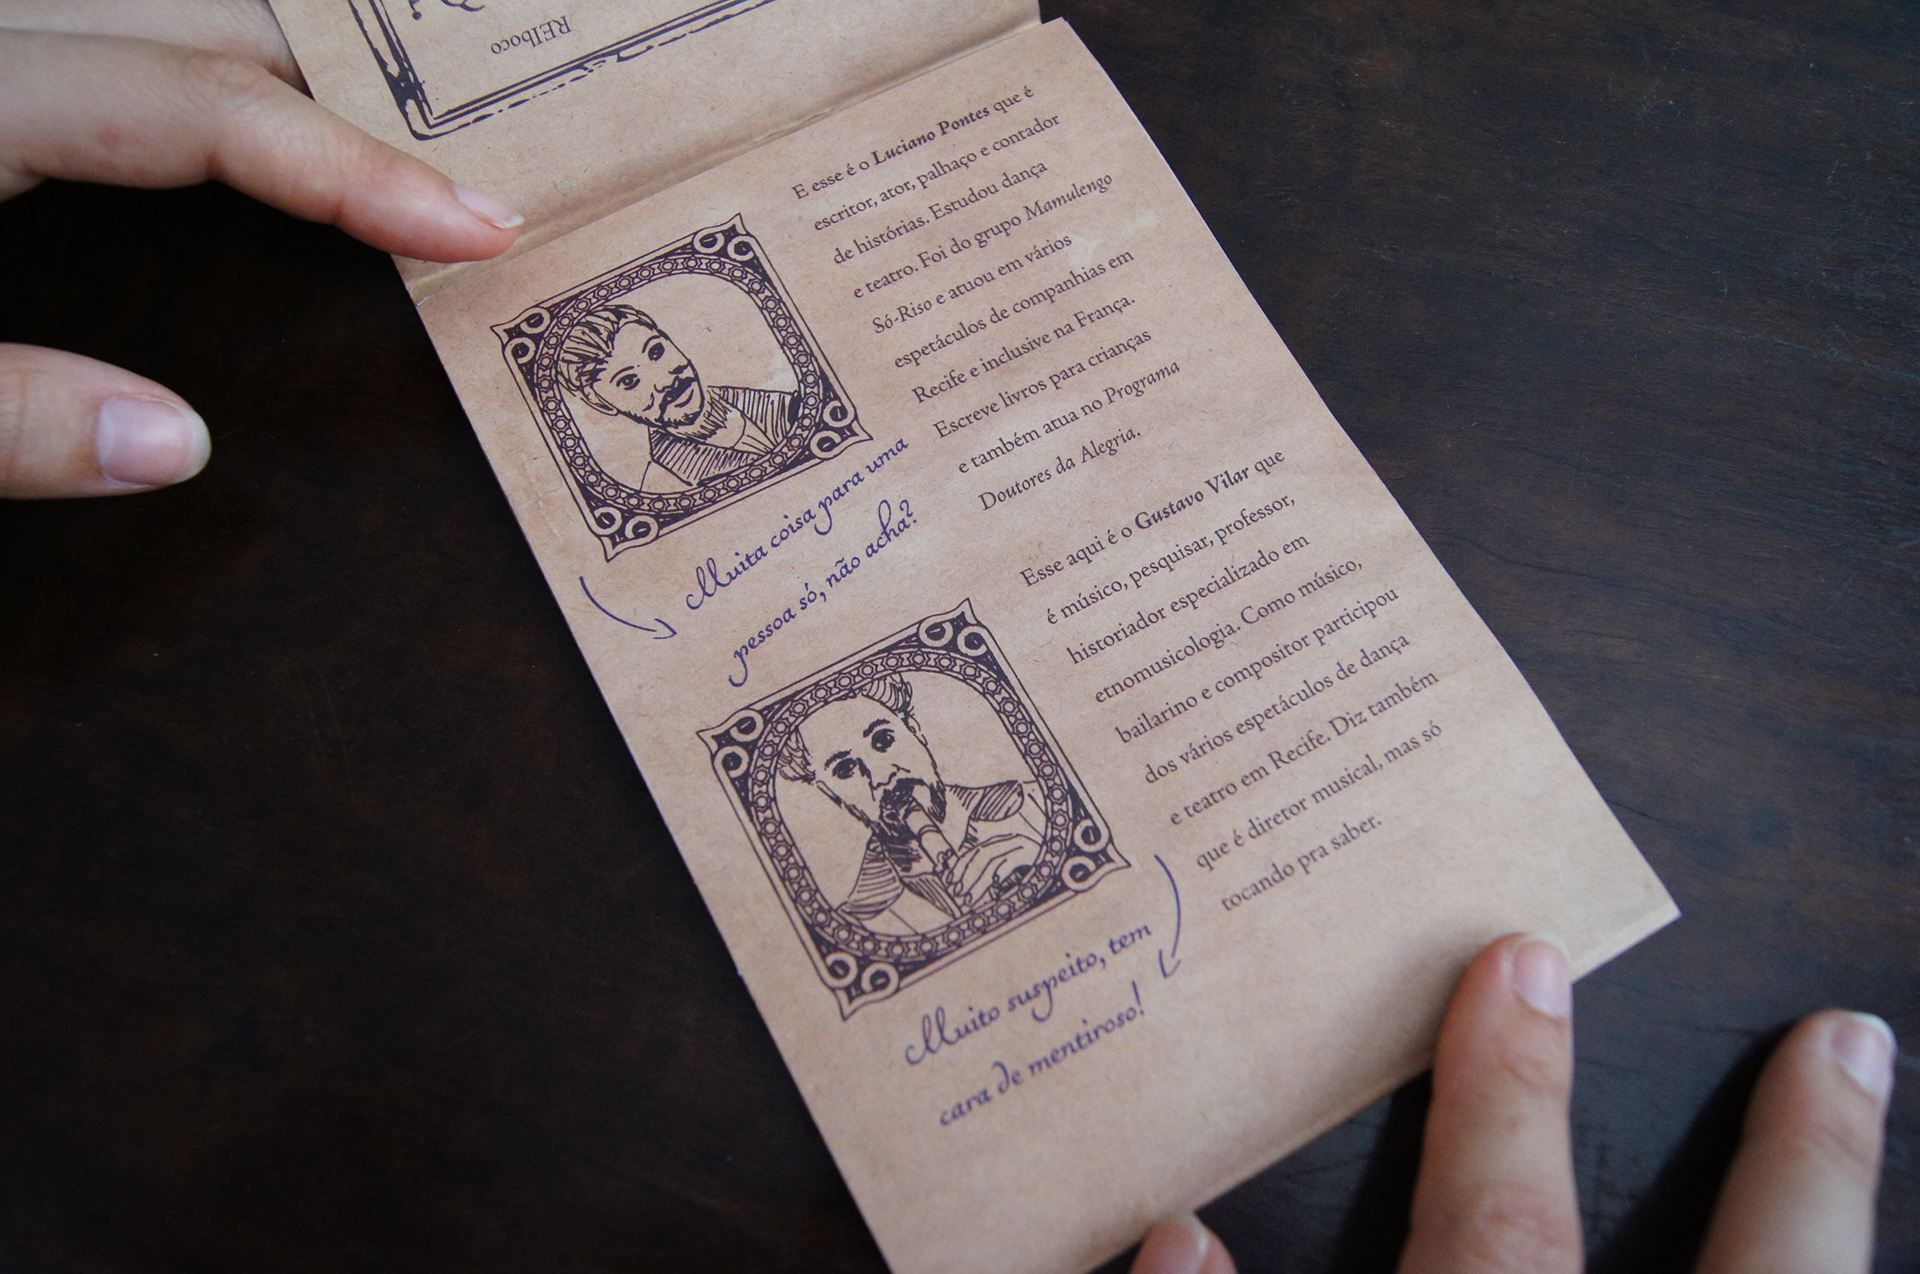 REIboco
E esse é o Luciano Pontes que é
escritor, ator, palhaço e contador
de histórias. Estudou dança
e teatro. Foi do grupo Mamulengo
Só-Riso e atuou em vários
espetáculos de companhias em
Recife e inclusive na França.
Escreve livros para crianças
e também atua no Programa
Doutores da Alegria.
Muita coisa para uma
pessoa só, não acha?
Esse aqui é o Gustavo Vilar que
é músico, pesquisar, professor,
historiador especializado em
etnomusicologia. Como músico,
bailarino e compositor participou
dos vários espetáculos de dança
e teatro em Recife. Diz também
que é diretor musical, mas só
tocando pra saber.
Muito suspeito, tem
cara de mentiroso!